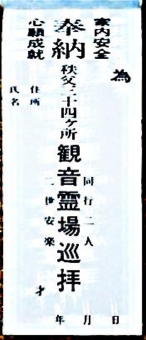 為
家内安全
心願成就
奉納
秩父三十四ヶ所
観音霊場巡拝
同行二人
二世安楽
住所
氏名
才
年 月 日